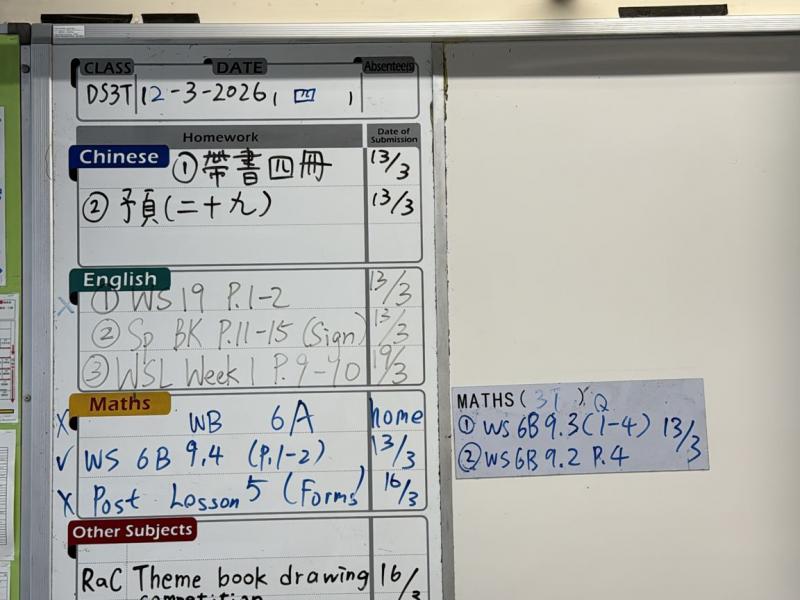 CLASS DATE Absentee(s)
DS3T 12-3-2026 ( 四 )
Homework Date of Submission
Chinese ① 帶書四冊 13/3
② 予頁(二十九) 13/3
English
① WS 19 P.1-2 13/3
② Sp BK P.11-15 (Sign) 13/3
③ WSL Week 1 P.9-10 19/3
Maths
X WB 6A home
✓ WS 6B 9.4 (P.1-2) 13/3
X Post Lesson 5 (Forms) 16/3
Other Subjects
RaC Theme book drawing 16/3
competition
MATHS( 3T ) Q
① WS 6B 9.3(1-4) 13/3
② WS 6B 9.2 P.4